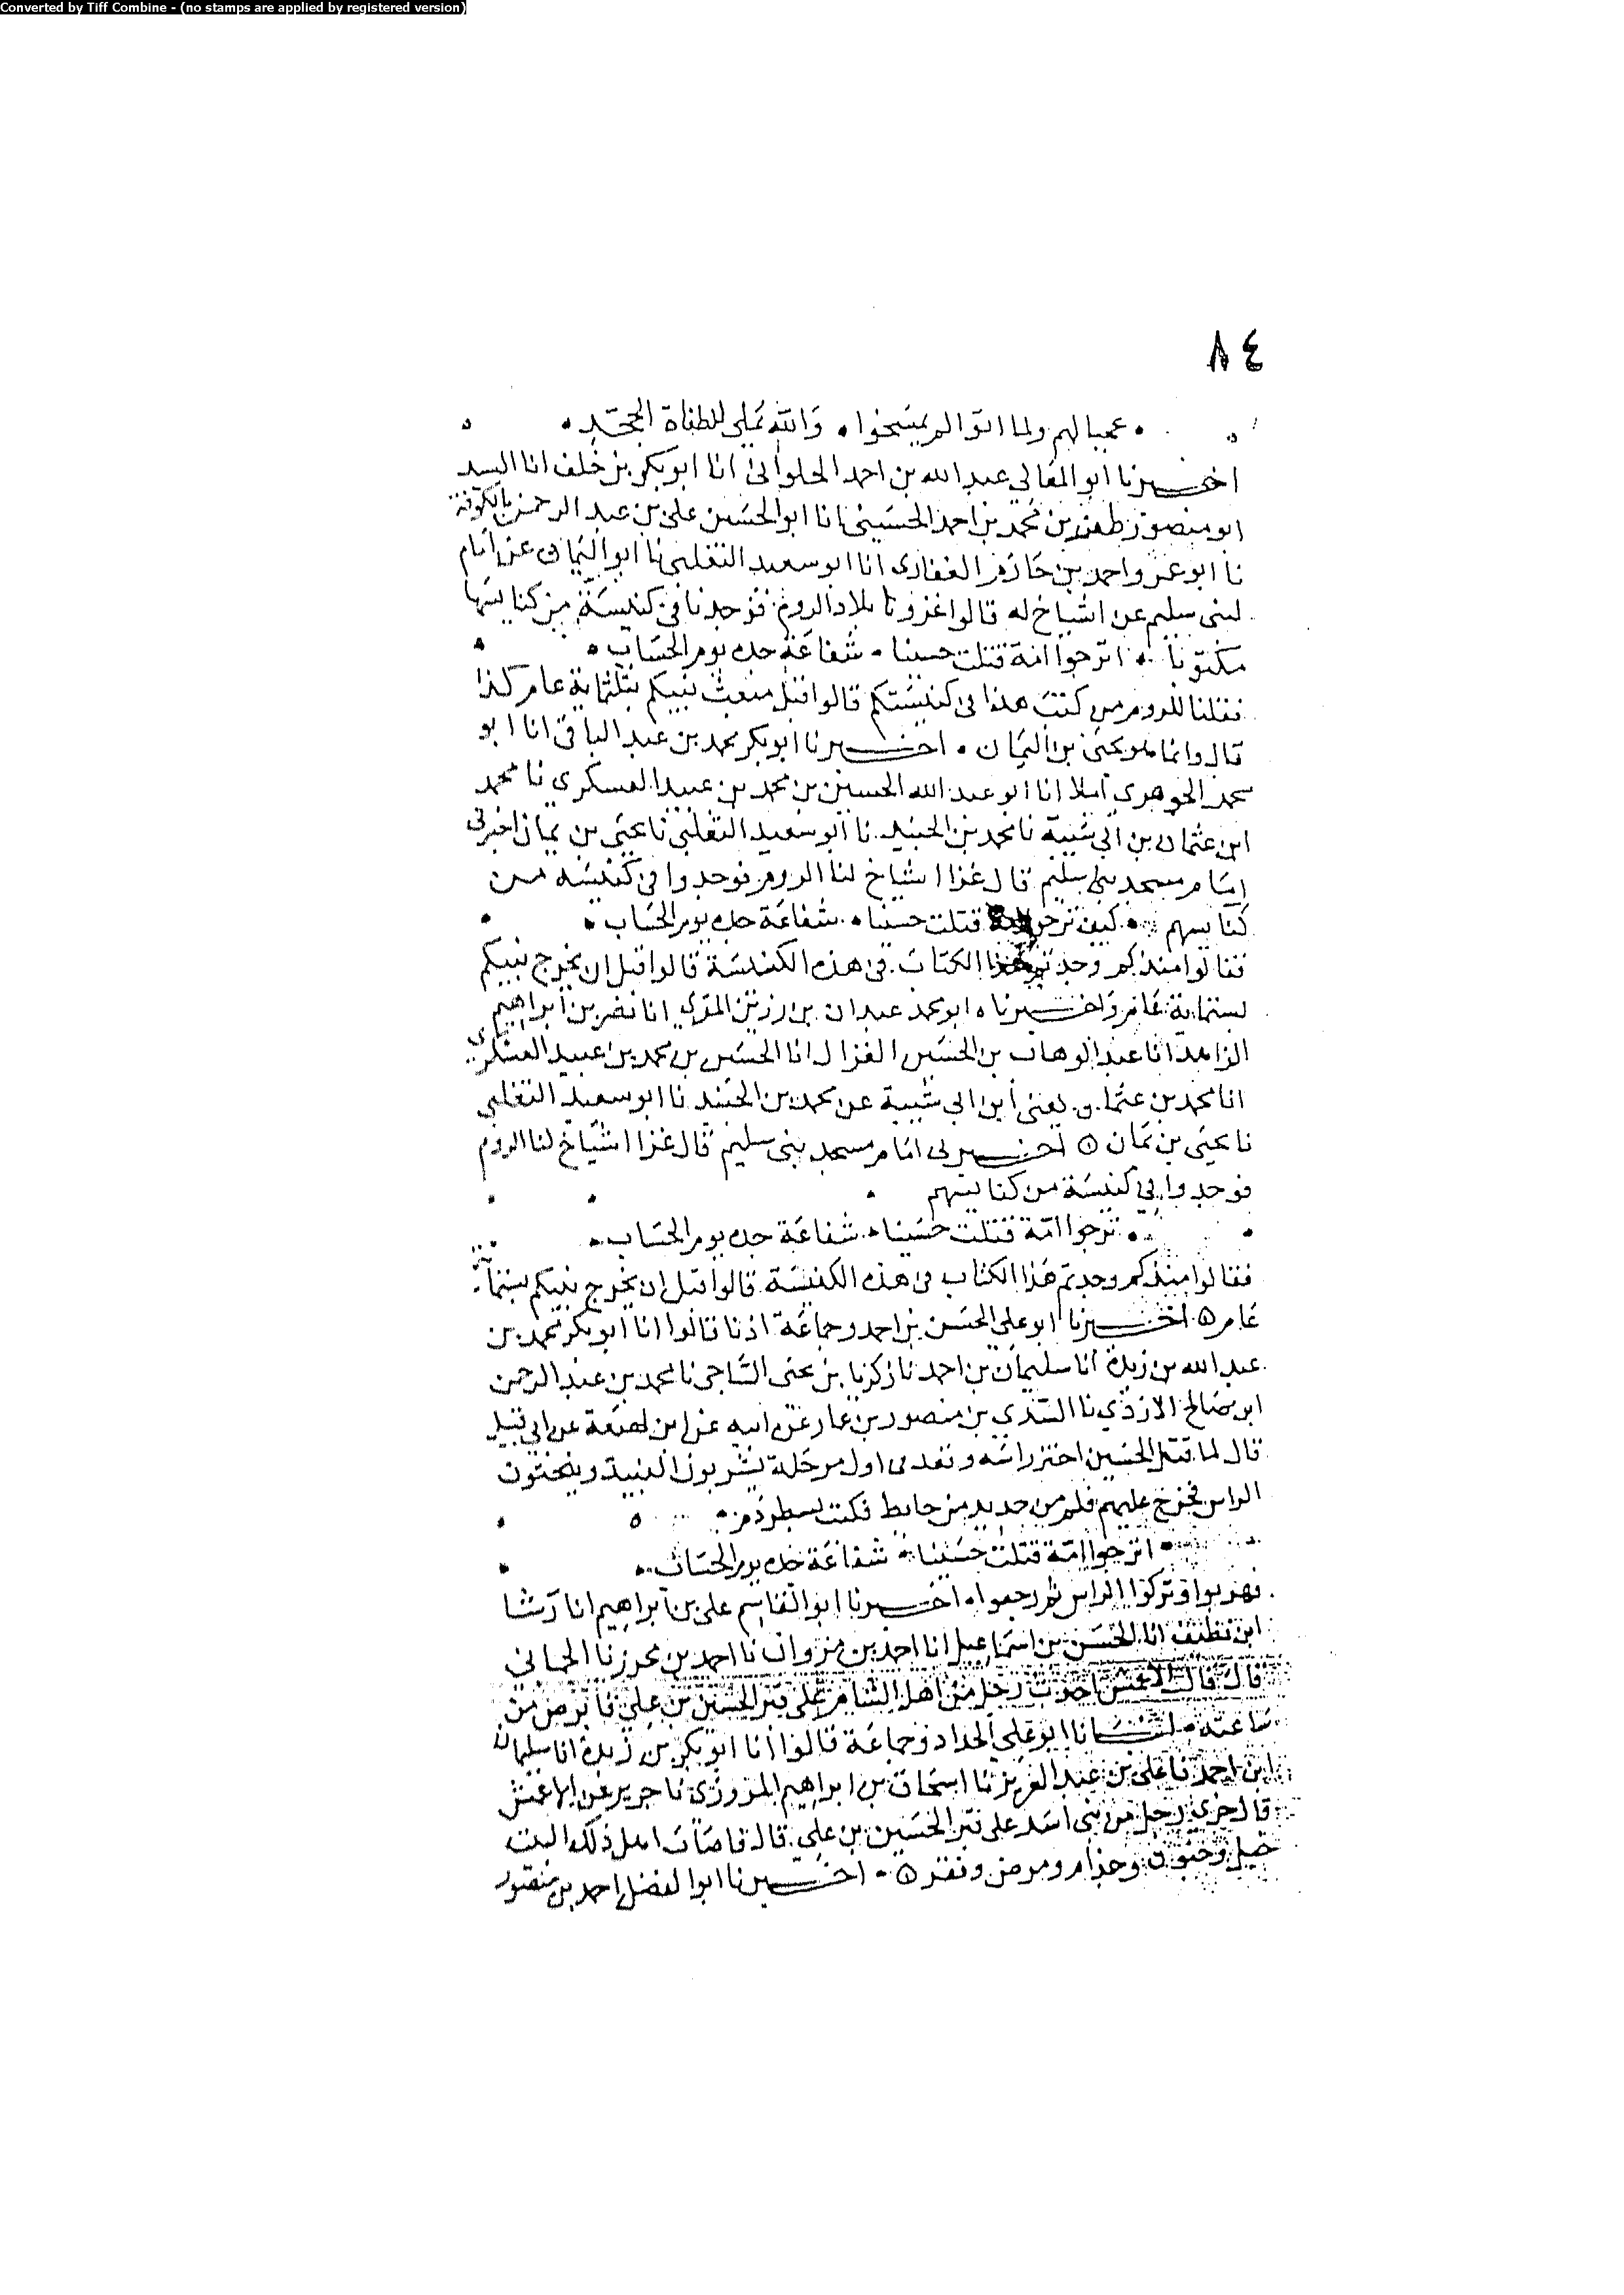 Converted by Tiff Combine - (no stamps are applied by registered version)
٨٤
عجبا لهم ولما اتوا لم يمسخوا • والله يملي للطغاة الجحد •
اخبرنا ابو المعالي عبد الله بن احمد الحلواني انا ابو بكر بن خلف انا السيد
ابو منصور ظفر بن محمد بن احمد الحسيني انا ابو الحسين علي بن عبد الرحمن بالكوفة
نا ابو عمرو احمد بن حازم الغفاري انا ابو سعيد التغلبي نا ابو اليمان عن امام
لبني سليم عن اشياخ له قالوا غزونا بلاد الروم فوجدنا في كنيسة من كنايسها
مكتوبا • اترجوا امة قتلت حسينا • شفاعة جده يوم الحساب •
فقلنا للروم من كتب هذا في كنيستكم قالوا قبل مبعث نبيكم بثلثماية عام كذا
قال وانما هو يحيى بن اليمان • اخبرنا ابو بكر محمد بن عبد الباقي انا ابو
محمد الجوهري املا انا ابو عبد الله الحسين بن محمد بن عبيد العسكري نا محمد
ابن عثمان بن ابي شيبة نا محمد بن الجنيد نا ابو سعيد التغلبي نا يحيى بن يمان اخبرني
امام مسجد بني سليم قال غزا اشياخ لنا الروم فوجدوا في كنيسه من
كنايسهم • كيف ترجوا امة قتلت حسينا • شفاعة جده يوم الحساب •
فقالوا منذ كم وجدتم هذا الكتاب في هذه الكنيسة قالوا قبل ان يخرج نبيكم
بستماية عام واخبرناه ابو محمد عبدان بن رزين المقري انا نصر بن ابراهيم
الزاهد انا عبد الوهاب بن الحسين الغزال انا الحسين بن محمد بن عبيد العسكري
انا محمد بن عثمان يعني ابن ابي شيبة عن محمد بن الجنيد نا ابو سعيد التغلبي
نا يحيى بن يمان ۞ اخبرني امام مسجد بني سليم قال غزا اشياخ لنا الروم
فوجدوا في كنيسة من كنايسهم
• ترجوا امة قتلت حسينا • شفاعة جده يوم الحساب •
فقالوا منذ كم وجدتم هذا الكتاب في هذه الكنيسة قالوا قبل ان يخرج نبيكم بستماية
عام ۞ اخبرنا ابو علي الحسن بن احمد وجماعة اذنا قالوا انا ابو بكر محمد بن
عبد الله بن ريذة انا سليمان بن احمد نا زكريا بن يحيى الساجي نا محمد بن عبد الرحمن
ابن صالح الازدي نا السدي بن منصور بن عمار عن ابيه عن ابن لهيعة عن ابي قبيل
قال لما قتل الحسين احتز راسه وقعد في اول مرحلة يشربون النبيذ
الراس فخرج عليهم قلم من حديد من حايط فكتب بسطر دم •
• اترجوا امة قتلت حسينا • شفاعة جده يوم الحساب •
فهربوا وتركوا الراس ثم رجعوا • اخبرنا ابو القاسم علي بن ابراهيم انا رشا
ابن نظيف انا الحسن بن اسماعيل انا احمد بن مروان نا احمد بن محرز نا الحماني
قال قال الاعمش احدث رجل من اهل الشام على قبر الحسين بن علي فابرص من
ساعته • انبانا ابو علي الحداد وجماعة قالوا انا ابو بكر بن ريذة انا سليمان
ابن احمد نا علي بن عبد العزيز نا اسحاق بن ابراهيم المروزي نا جرير عن الاعمش
قال خري رجل من بني اسد على قبر الحسين بن علي قال فاصاب اهل ذلك البيت
خبل وجنون وجذام ومرض وفقر ۞ • اخبرنا ابو الفضل احمد بن منصور